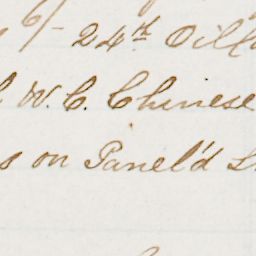 6/- 24th Oill
W. C. Chinese
s on Panel'd